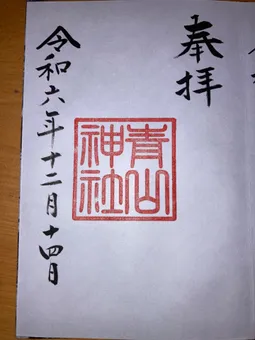 奉拝
青山
神社
令和六年十二月十四日